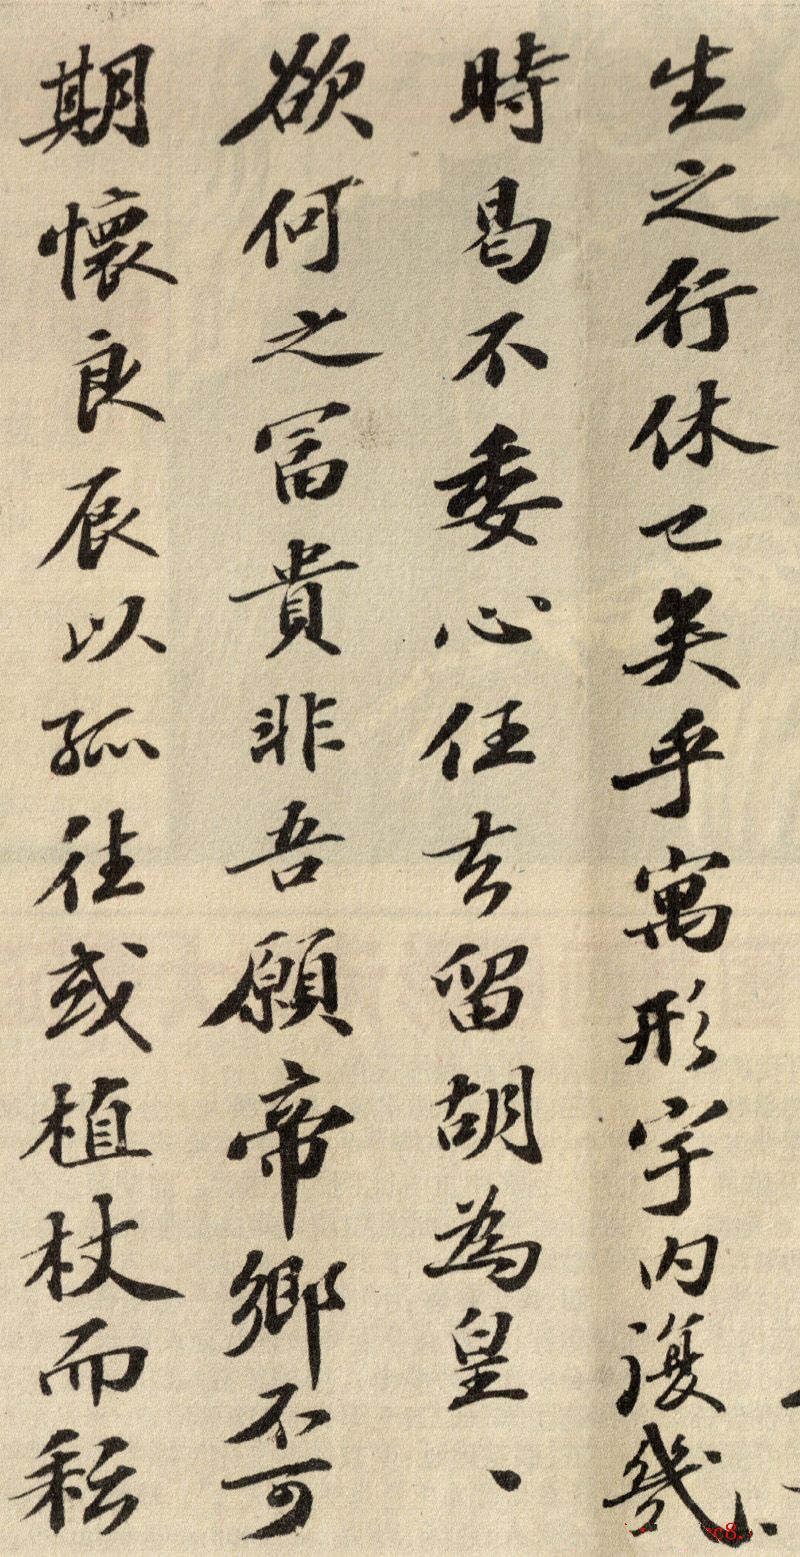 生之行休已矣乎寓形宇内復幾
時曷不委心任去留胡為皇、
欲何之富貴非吾願帝鄉不可
期懷良辰以孤往或植杖而耘